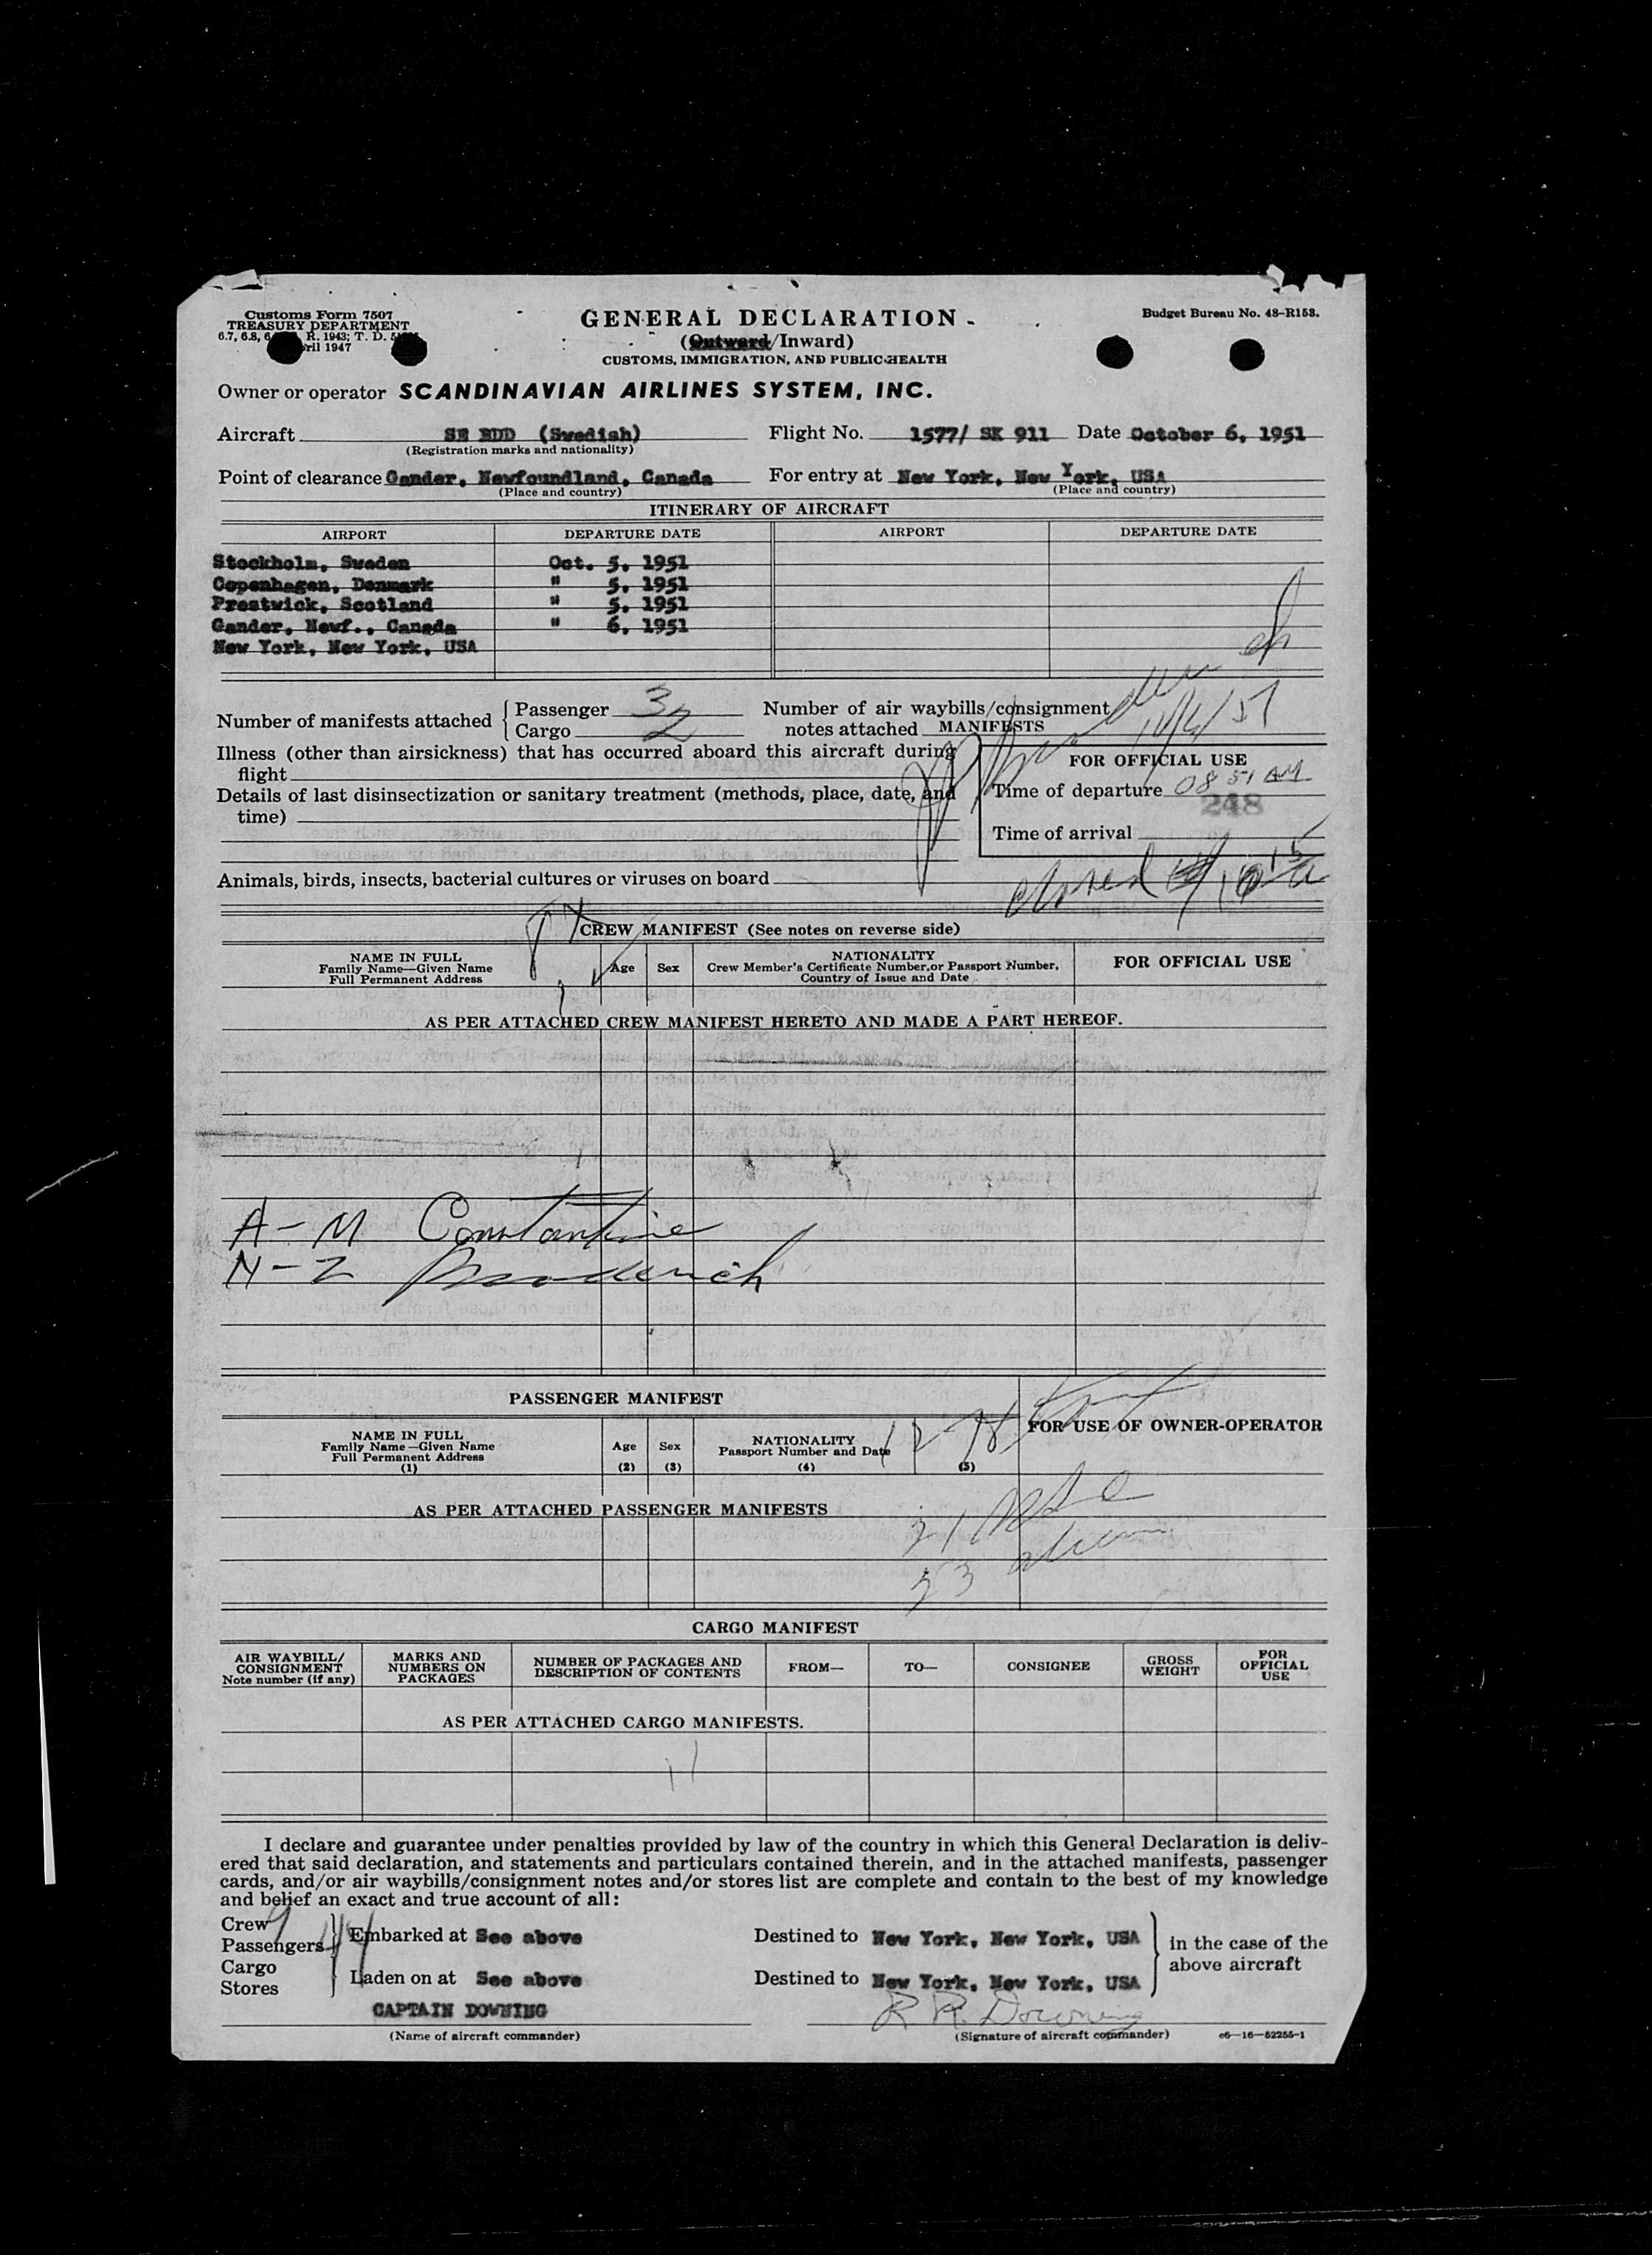 Customs Form 7507
TREASURY DEPARTMENT
6.7, 6.8, R. 1943; T. D.
1947
GENERAL DECLARATION
(Outward/Inward)
CUSTOMS, IMMIGRATION, AND PUBLIC HEALTH
Budget Bureau No. 48-R153.
Owner or operator SCANDINAVIAN AIRLINES SYSTEM, INC.
Aircraft SE BDD (Swedish) Flight No. 1577/ SK 911 Date October 6, 1951
(Registration marks and nationality)
Point of clearance Gander, Newfoundland, Canada For entry at New York, New York, USA
(Place and country) (Place and country)
ITINERARY OF AIRCRAFT
AIRPORT DEPARTURE DATE AIRPORT DEPARTURE DATE
Stockholm, Sweden Oct. 5, 1951
Copenhagen, Denmark " 5, 1951
Prestwick, Scotland " 5, 1951
Gander, Newf., Canada " 6, 1951
New York, New York, USA
Number of manifests attached { Passenger 3
Cargo 2
Number of air waybills/consignment
notes attached MANIFESTS
10/6/51
Illness (other than airsickness) that has occurred aboard this aircraft during
flight
Details of last disinsectization or sanitary treatment (methods, place, date, and
time)
FOR OFFICIAL USE
Time of departure 08 51 AM
248
Time of arrival
Animals, birds, insects, bacterial cultures or viruses on board
CREW MANIFEST (See notes on reverse side)
NAME IN FULL
Family Name—Given Name
Full Permanent Address
Age
Sex
NATIONALITY
Crew Member's Certificate Number, or Passport Number,
Country of Issue and Date
FOR OFFICIAL USE
AS PER ATTACHED CREW MANIFEST HERETO AND MADE A PART HEREOF.
A-M Constantine
N-Z Broderick
PASSENGER MANIFEST
FOR USE OF OWNER-OPERATOR
NAME IN FULL
Family Name—Given Name
Full Permanent Address
(1)
Age
(2)
Sex
(3)
NATIONALITY
Passport Number and Date
(4)
(5)
AS PER ATTACHED PASSENGER MANIFESTS
21
23
CARGO MANIFEST
AIR WAYBILL/
CONSIGNMENT
Note number (if any)
MARKS AND
NUMBERS ON
PACKAGES
NUMBER OF PACKAGES AND
DESCRIPTION OF CONTENTS
FROM—
TO—
CONSIGNEE
GROSS
WEIGHT
FOR
OFFICIAL
USE
AS PER ATTACHED CARGO MANIFESTS.
I declare and guarantee under penalties provided by law of the country in which this General Declaration is deliv-
ered that said declaration, and statements and particulars contained therein, and in the attached manifests, passenger
cards, and/or air waybills/consignment notes and/or stores list are complete and contain to the best of my knowledge
and belief an exact and true account of all:
Crew 9
Passengers 44
Cargo
Stores
Embarked at See above Destined to New York, New York, USA
Laden on at See above Destined to New York, New York, USA
in the case of the
above aircraft
CAPTAIN DOWNING R R. Downing
(Name of aircraft commander) (Signature of aircraft commander) c6—16—52255-1